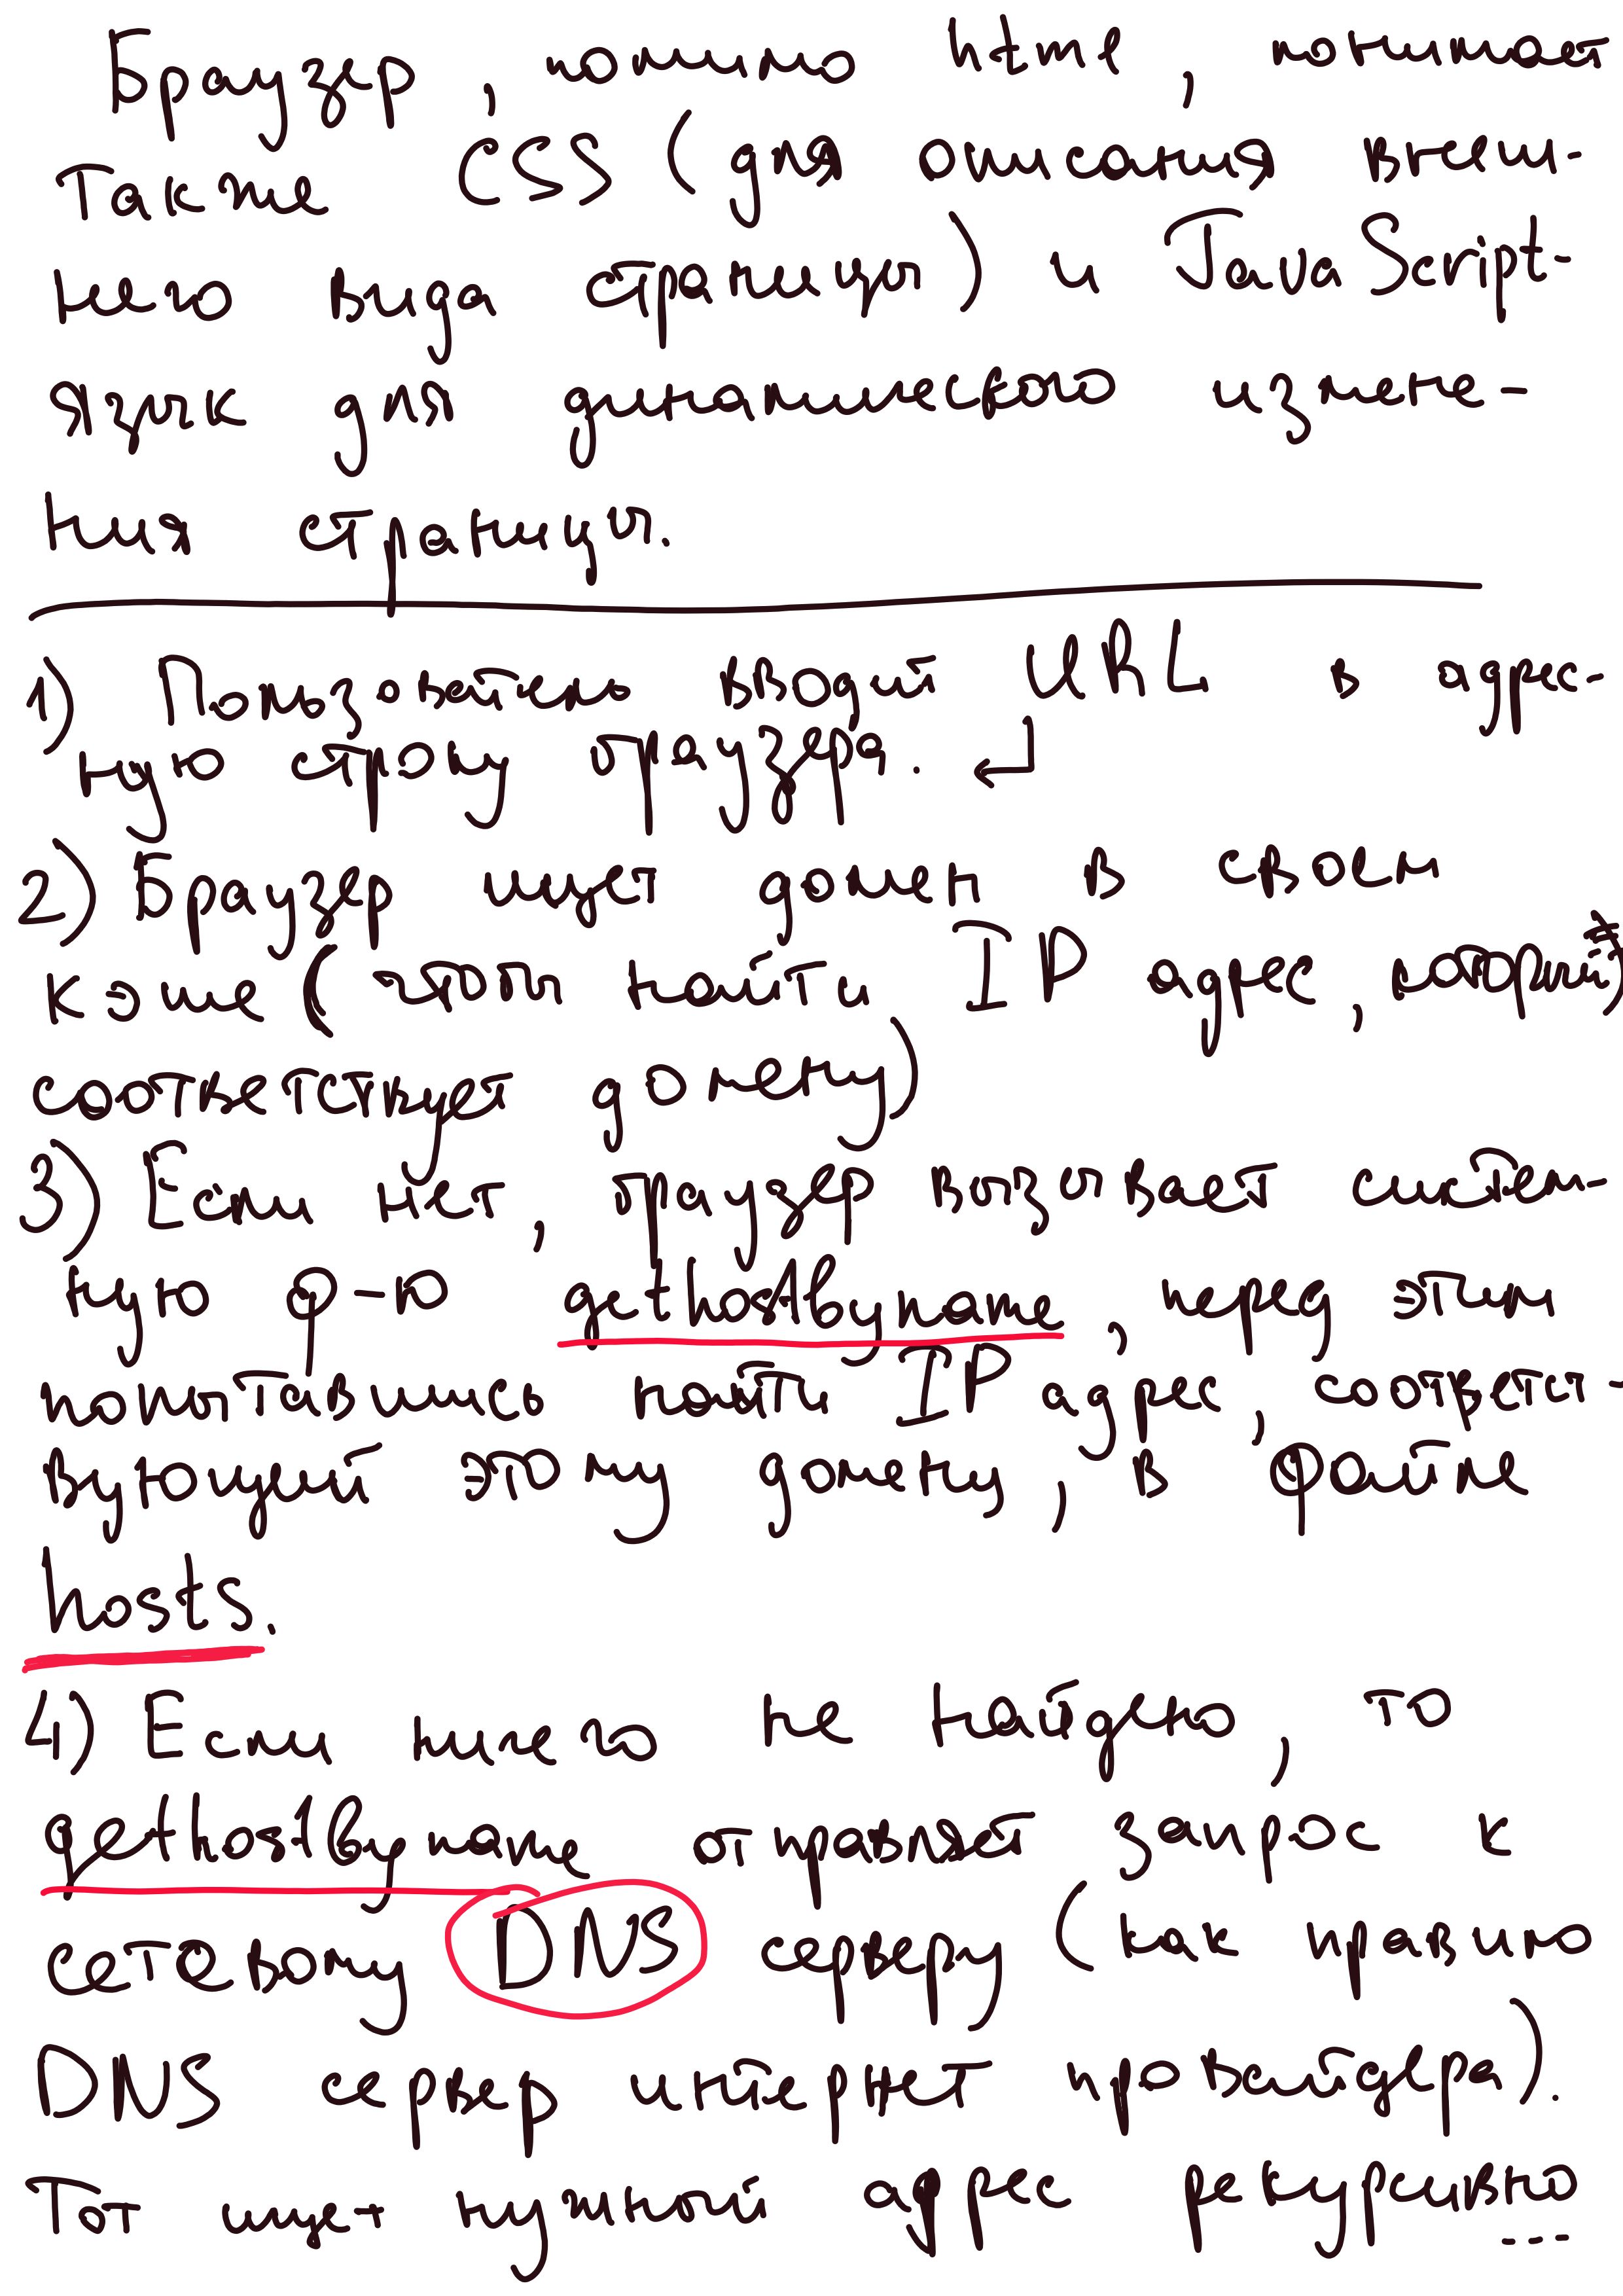 Браузер, помимо html, понимает
также CSS (для описания внеш-
него вида страницы) и JavaScript-
язык для динамического измене-
ния страницы.
1) Пользователь вводит URL в адрес-
ную строку браузера. ↵
2) Браузер ищет домен в своем
кэше (чтобы найти IP адрес, который
соответствует домену)
3) Если нет, браузер вызывает систем-
ную ф-ю gethostbyname, перед этим
попытавшись найти IP адрес, соответст-
вующий этому домену, в файле
hosts.
4) Если ничего не найдено, то
gethostbyname отправляет запрос к
сетевому DNS серверу (как правило
DNS сервер интернет провайдера).
Тот ищет нужный адрес рекурсивно
...